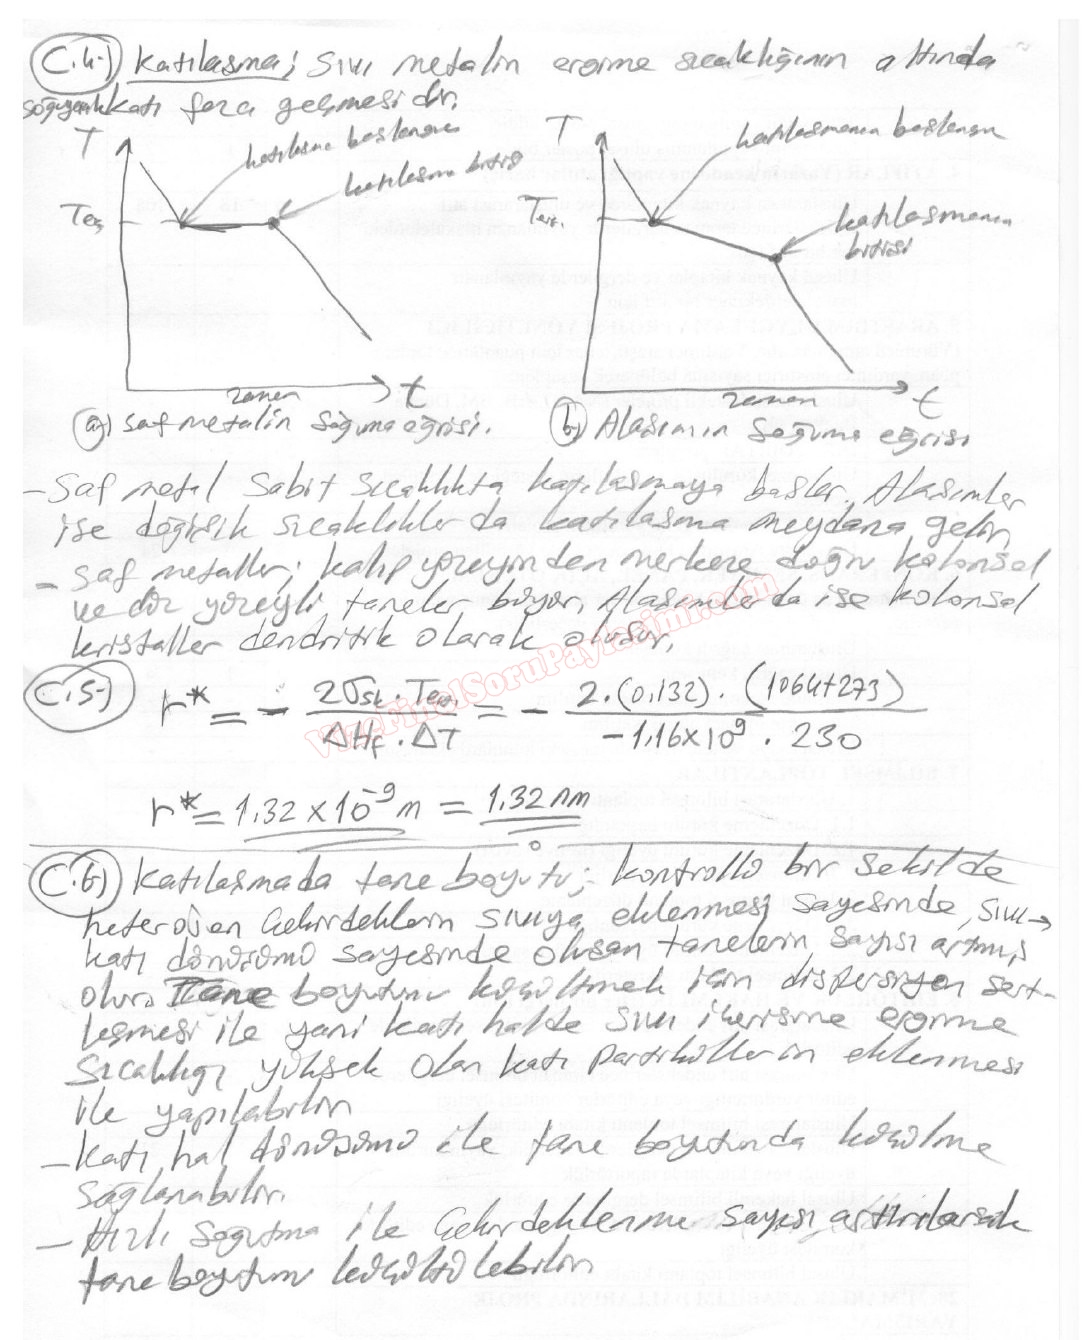 C.4-) Katılaşma; Sıvı metalin ergime sıcaklığının altında
soğuyarak katı faza geçmesidir.
T
katılaşma başlangıcı
katılaşma bitişi
Ter.
zaman
t
a) Saf metalin Soğuma eğrisi.
T
katılaşmanın başlangıcı
Ter.
katılaşmanın
bitişi
zaman
t
b) Alaşımın Soğuma eğrisi
- Saf metal Sabit Sıcaklıkta katılaşmaya başlar, Alaşımlar
ise değişik sıcaklıklar da katılaşma meydana gelir,
- Saf metaller; kalıp yüzeyinden merkeze doğru kolonsal
ve düz yüzeyli taneler büyür, Alaşımlar da ise kolonsal
kristaller dendritik olarak oluşur.
C.5-) r* = - 2σsk . Ter. / ΔHf . ΔT = - 2.(0,132) . (1064+273) / -1,16x10⁹ . 230
r* = 1,32 x 10⁻⁹ m = 1,32 nm
C.6) Katılaşmada tane boyutu; kontrollü bir şekilde
heterojen Çekirdeklerin sıvıya eklenmesi sayesinde, sıvı→
katı dönüşümü sayesinde oluşan tanelerin sayısı artmış
olur. Tane boyutunu küçültmek için dispersiyon sert-
leşmesi ile yani katı halde sıvı içerisine ergime
Sıcaklığı yüksek olan katı partiküllerin eklenmesi
ile yapılabilir
- Katı hal dönüşümü ile tane boyutunda küçülme
sağlanabilir.
- Hızlı Soğutma ile Çekirdeklenme sayısı arttırılarak
tane boyutunu küçültülebilir.
VizeFinalSoruPaylasimi.com